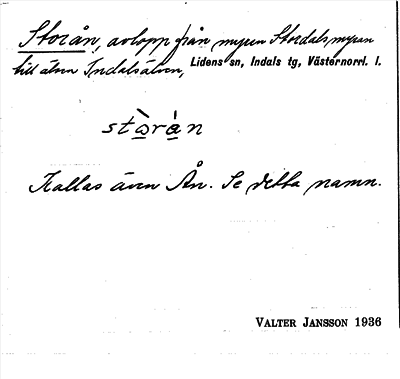 Storån, avlopp från myren Stordalsmyren
till älven Indalsälven, Lidens sn, Indals tg, Västernorrl. l.
stὼ̲rȧ̲n
Kallas även Ån. Se detta namn.
VALTER JANSSON 1936